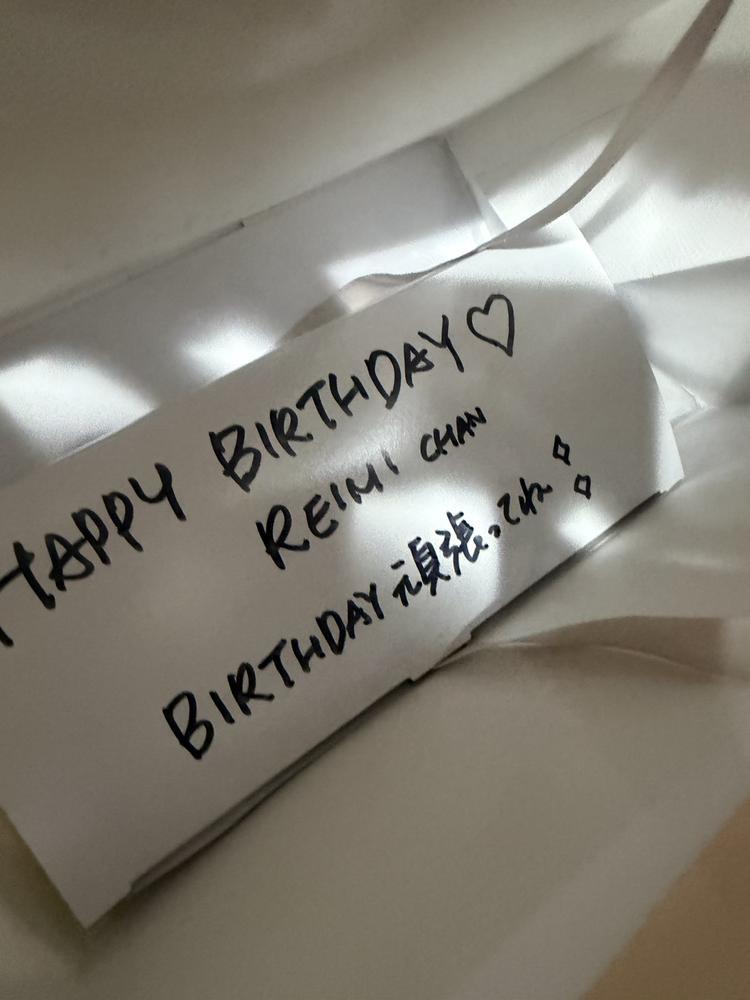 HAPPY BIRTHDAY♡
REIMI CHAN
BIRTHDAY頑張ってね✧✧